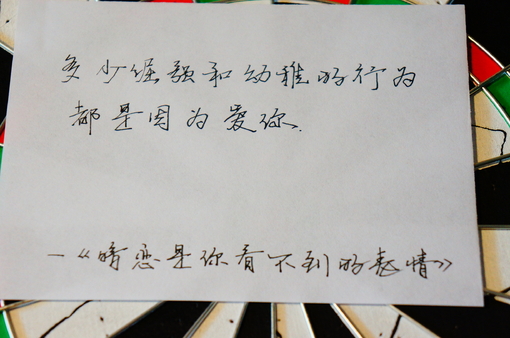 多少倔强和幼稚的行为
都是因为爱你.
—《暗恋是你看不到的表情》